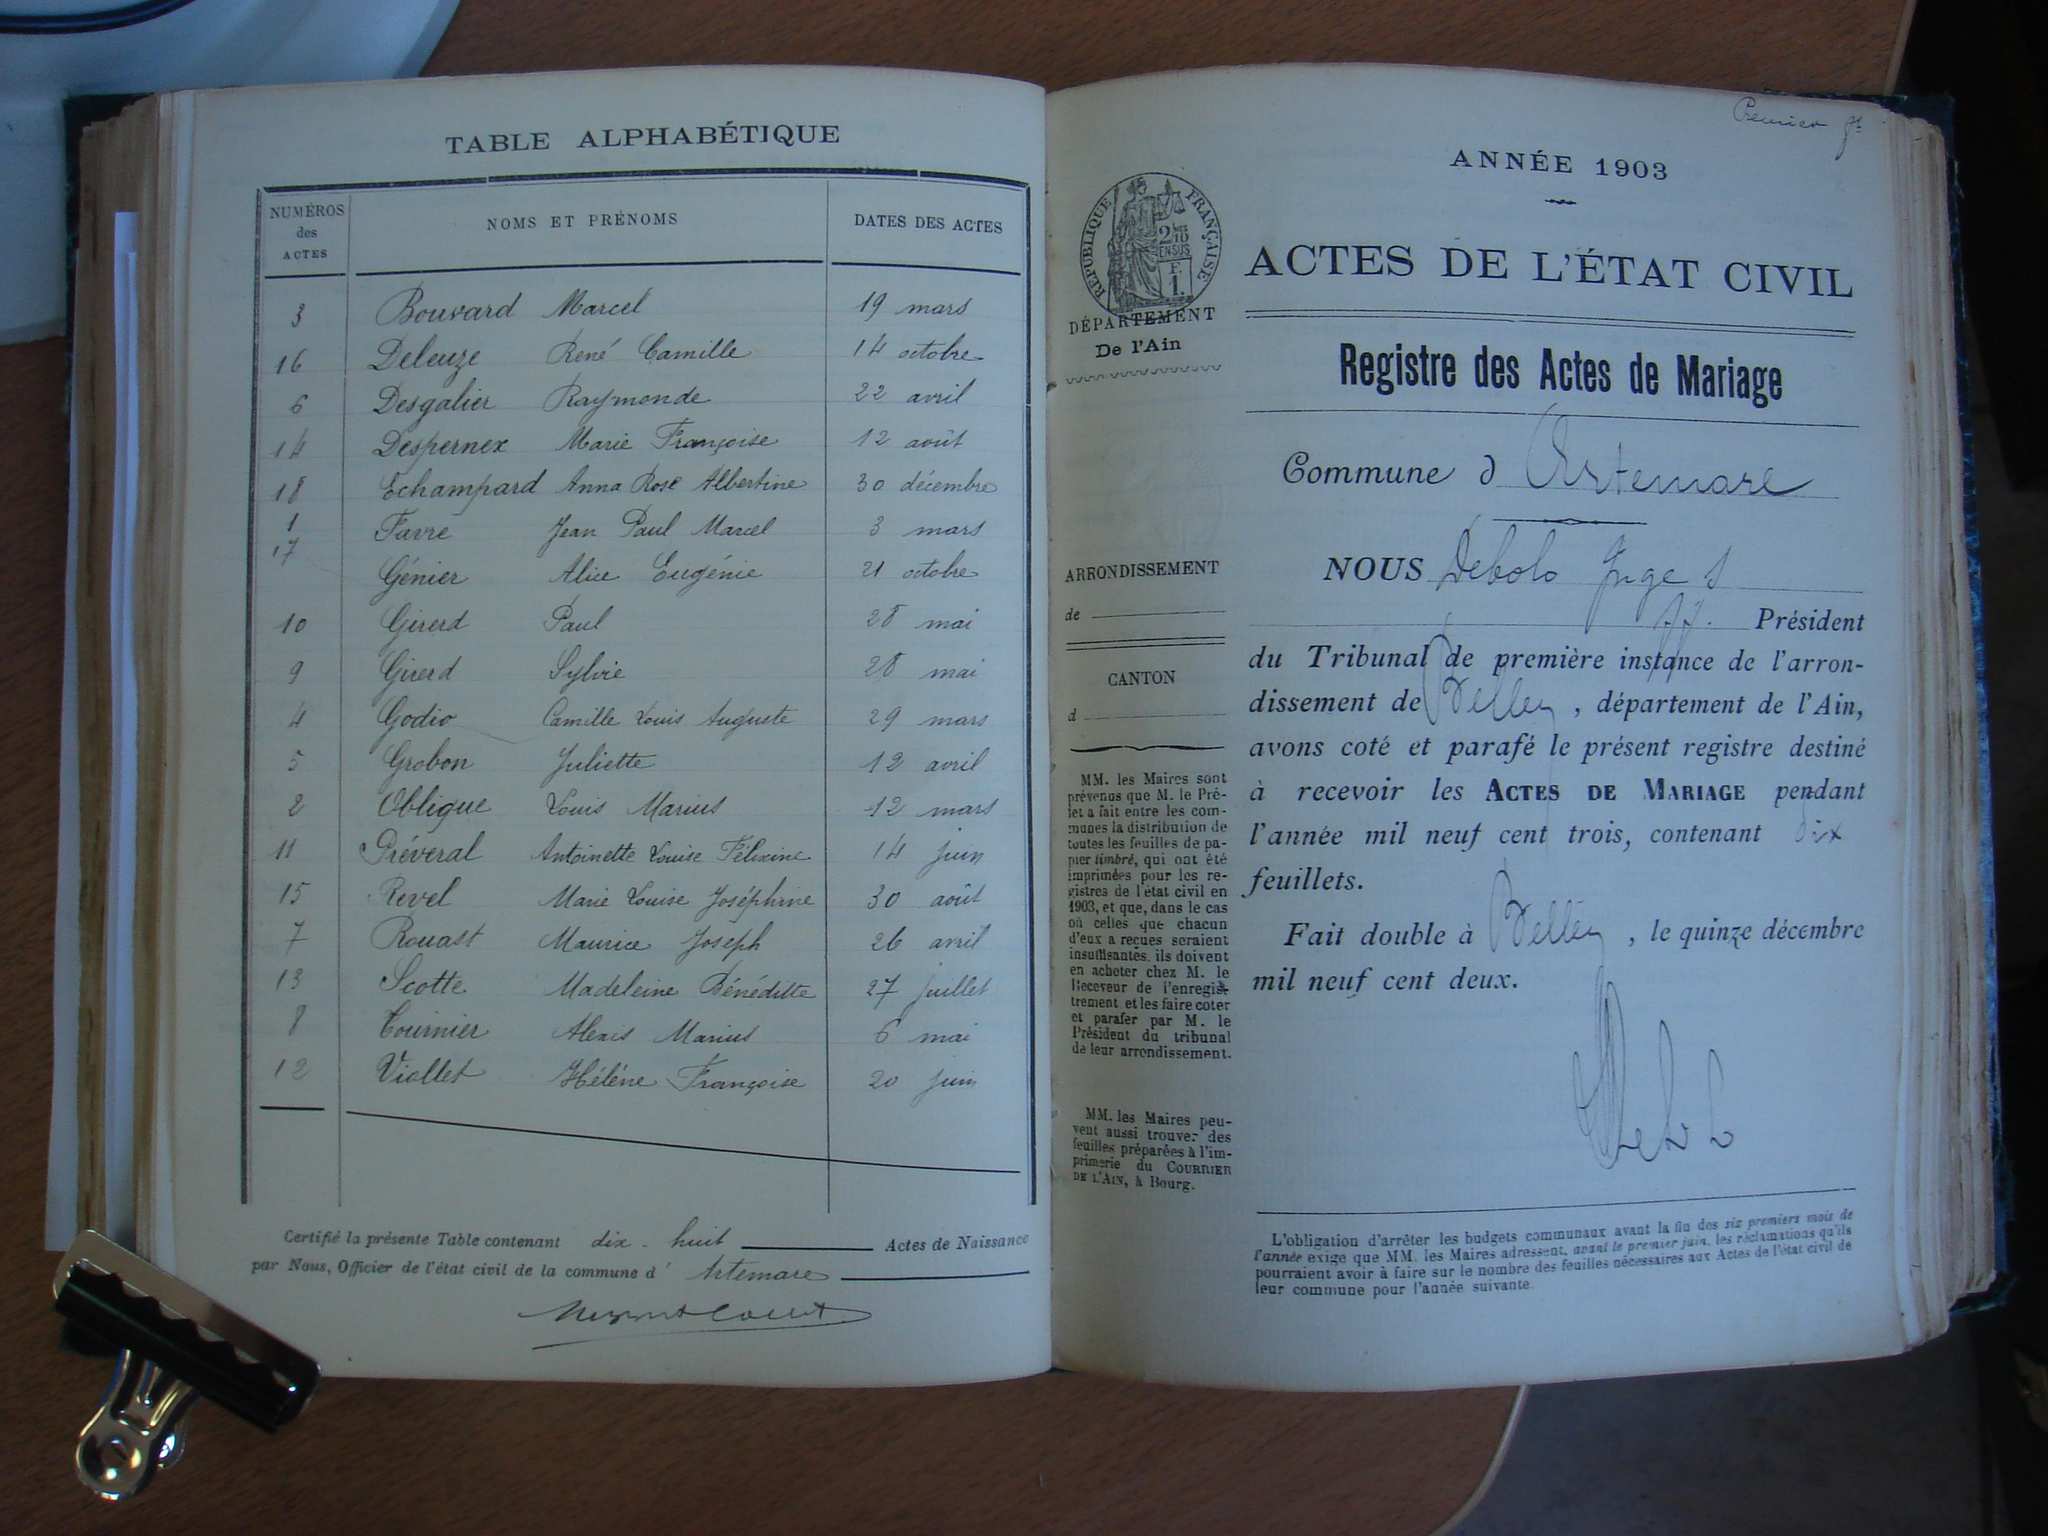 TABLE ALPHABÉTIQUE
NUMÉROS des ACTES NOMS ET PRÉNOMS DATES DES ACTES
3 Bouvard Marcel 19 mars
16 Deleuze René Camille 14 octobre
6 Desgalier Raymonde 22 avril
14 Despernex Marie Françoise 12 août
18 Echampard Anna Rose Albertine 30 décembre
1 Favre Jean Paul Marcel 3 mars
17 Génier Alice Eugénie 21 octobre
10 Girerd Paul 28 mai
9 Girerd Sylvie 28 mai
4 Godio Camille Louis Auguste 29 mars
5 Grobon Juliette 12 avril
2 Oblique Louis Marius 12 mars
11 Préveral Antoinette Louise Félixine 14 juin
15 Revel Marie Louise Joséphine 30 août
7 Rouast Maurice Joseph 26 avril
13 Scotte Madeleine Bénéditte 27 juillet
8 Tournier Alexis Marius 6 mai
12 Viollet Hélène Françoise 20 juin
Certifié la présente Table contenant dix-huit Actes de Naissance
par Nous, Officier de l'état civil de la commune d'Artemare
Premier
ANNÉE 1903
RÉPUBLIQUE FRANÇAISE
2/10 EN SUS
F. 1.
DÉPARTEMENT
De l'Ain
ACTES DE L'ÉTAT CIVIL
Registre des Actes de Mariage
Commune d Artemare
NOUS Debolo Juge
Président
du Tribunal de première instance de l'arron-
dissement de Belley, département de l'Ain,
avons coté et parafé le présent registre destiné
à recevoir les ACTES DE MARIAGE pendant
l'année mil neuf cent trois, contenant dix
feuillets.
Fait double à Belley, le quinze décembre
mil neuf cent deux.
ARRONDISSEMENT
de
CANTON
d
MM. les Maires sont
prévenus que M. le Pré-
fet a fait entre les com-
munes la distribution de
toutes les feuilles de pa-
pier timbré, qui ont été
imprimées pour les re-
gistres de l'état civil en
1903, et que, dans le cas
où celles que chacun
d'eux a reçues seraient
insuffisantes, ils doivent
en acheter chez M. le
Receveur de l'enregis-
trement et les faire coter
et parafer par M. le
Président du tribunal
de leur arrondissement.
MM. les Maires peu-
vent aussi trouver des
feuilles préparées à l'im-
primerie du COURRIER
DE L'AIN, à Bourg.
L'obligation d'arrêter les budgets communaux avant la fin des six premiers mois de
l'année exige que MM. les Maires adressent, avant le premier juin, les réclamations qu'ils
pourraient avoir à faire sur le nombre des feuilles nécessaires aux Actes de l'état civil de
leur commune pour l'année suivante.